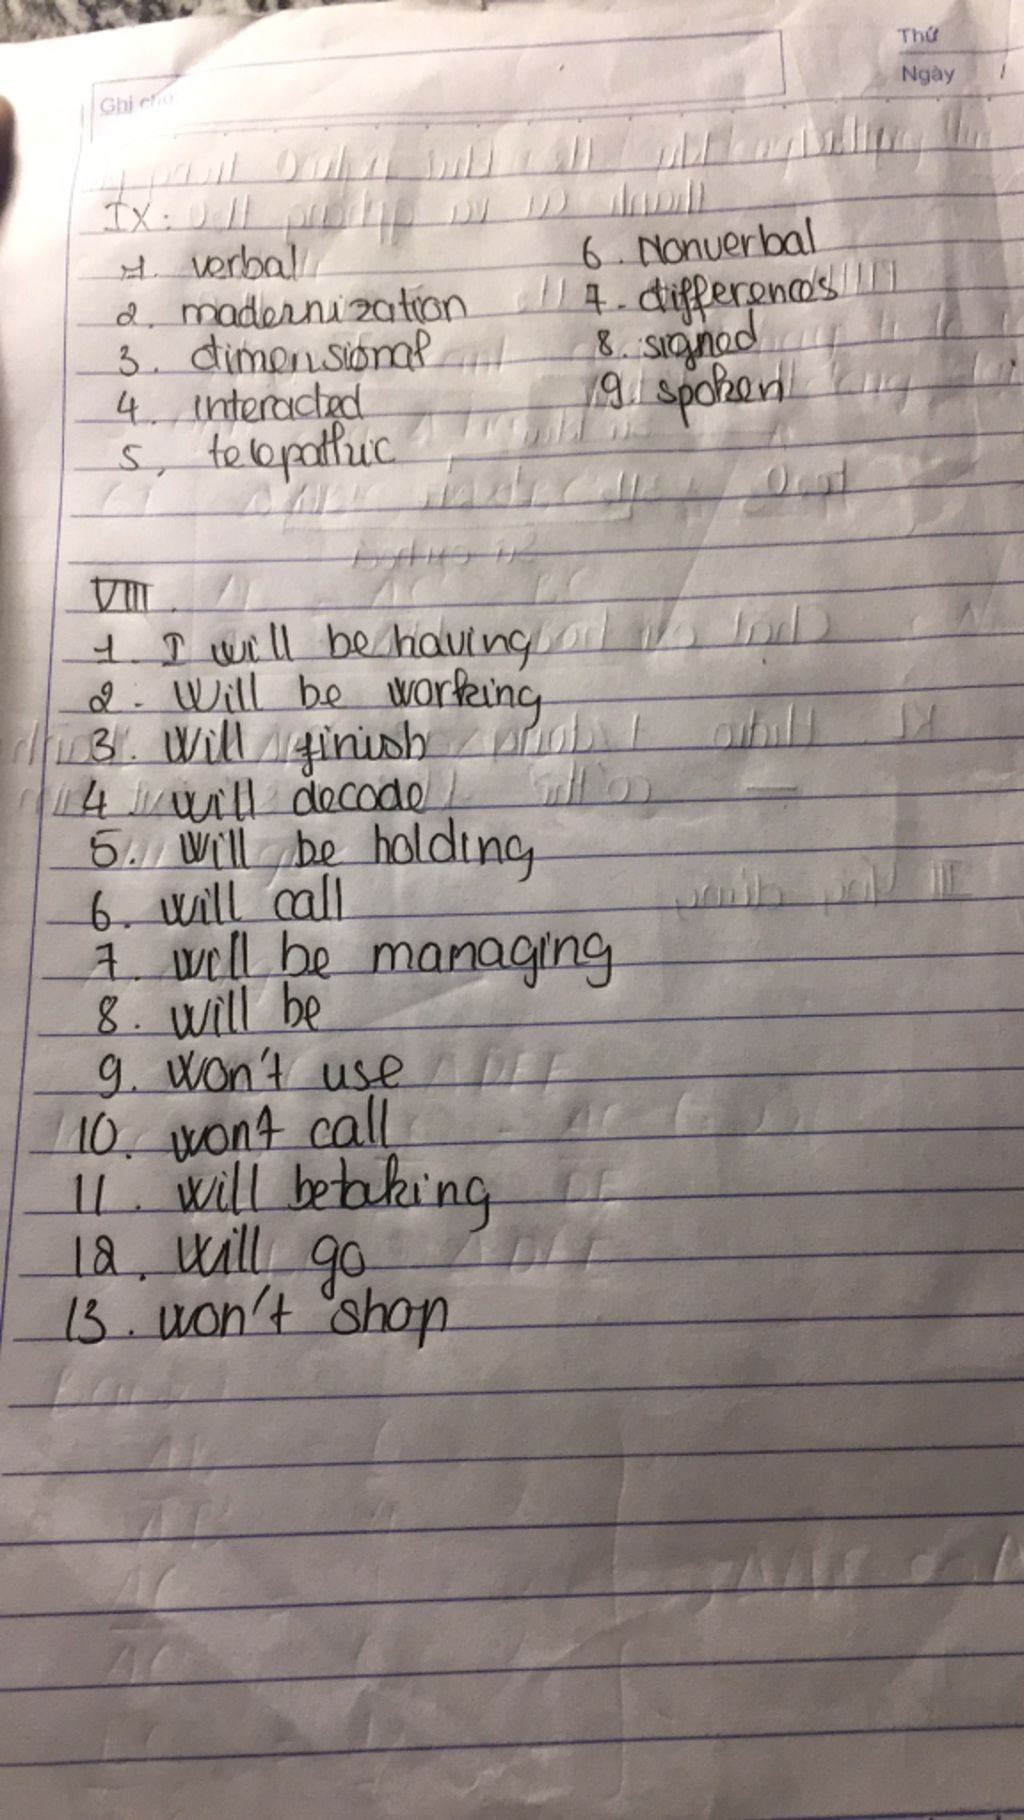 Thứ
Ngày
Ghi chú
IX:
1. verbal
2. madernization
3. dimensional
4. interacted
5, telepathic
6. Nonverbal
7. differences
8. signed
9. spoken
VIII.
1. I will be having
2. Will be working
3. Will finish
4 will decode
5. Will be holding
6. will call
7. will be managing
8. will be
9. won't use
10. wont call
11. will betaking
12. will go
13. won't shop